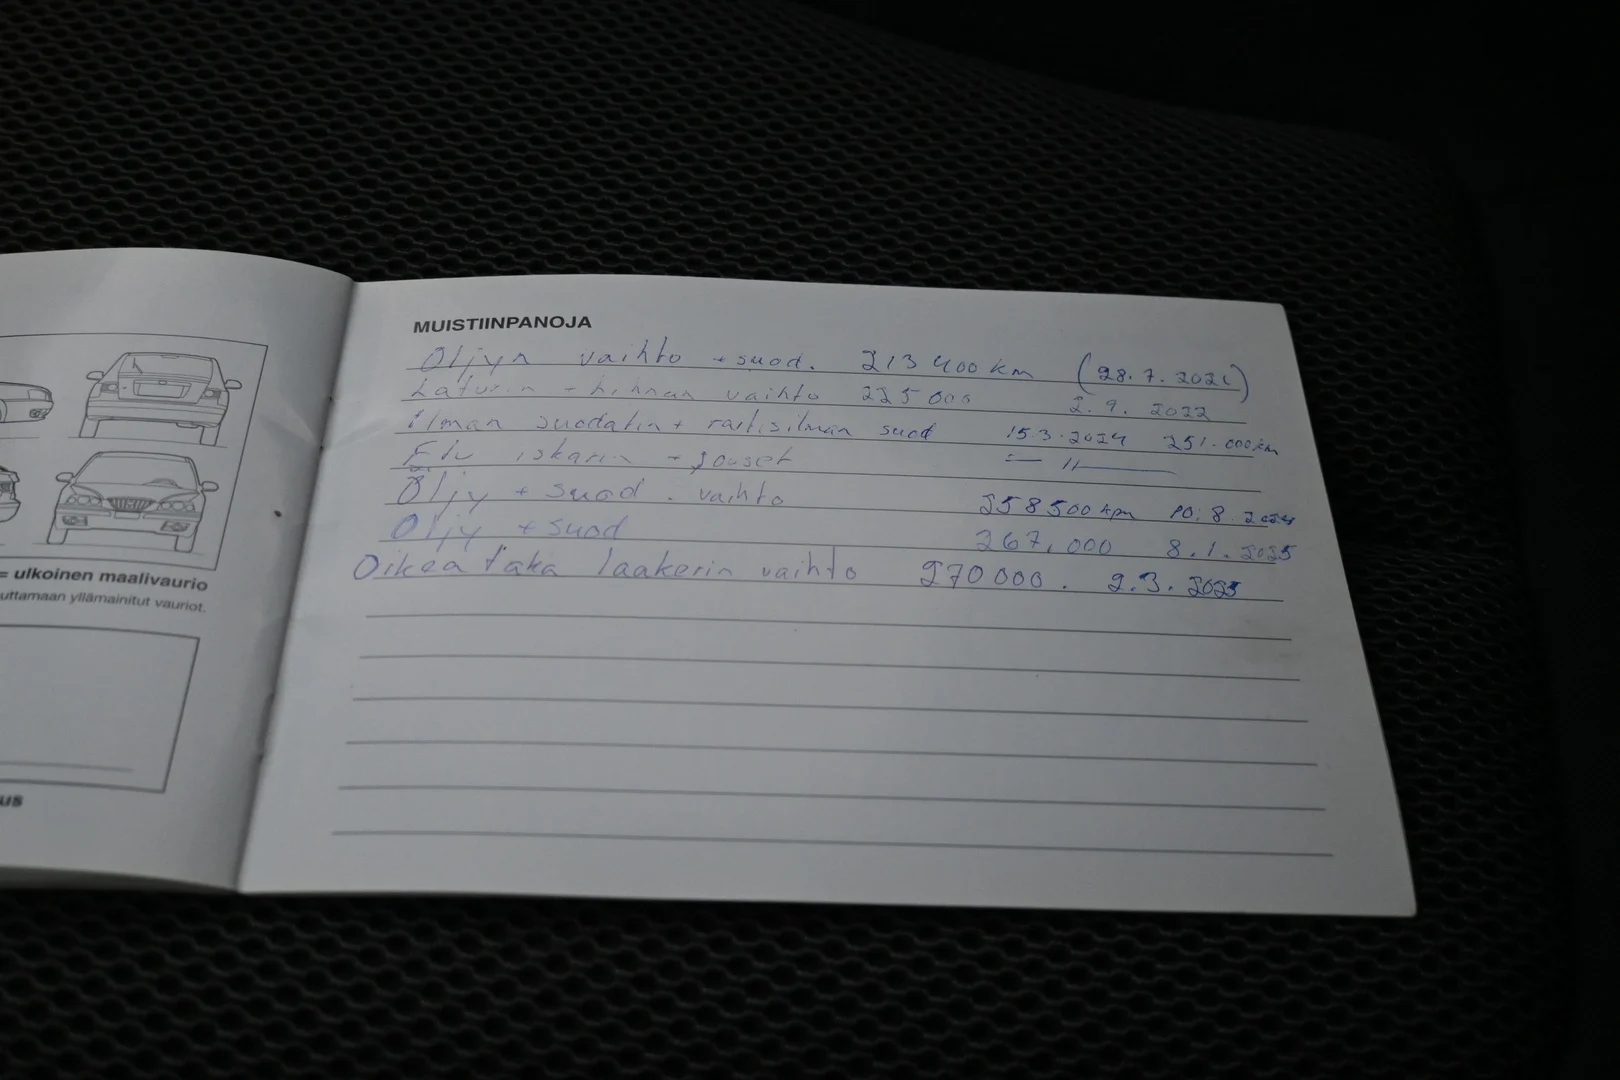 = ulkoinen maalivaurio
uttamaan yllämainitut vauriot.
us
MUISTIINPANOJA
Öljyn vaihto + suod. 213 400 km (28.7.2021)
Laturin + hihnan vaihto 225 000 2.9. 2022
Ilman suodatin + raitisilman suod 15.3.2024 251.000km
Etu iskarin + jouset =— 11 —
Öljy + suod. vaihto 258500 km 10.8.2024
Öljy + suod 267,000 8.1.2025
Oikea taka laakerin vaihto 270000. 2.3.2025